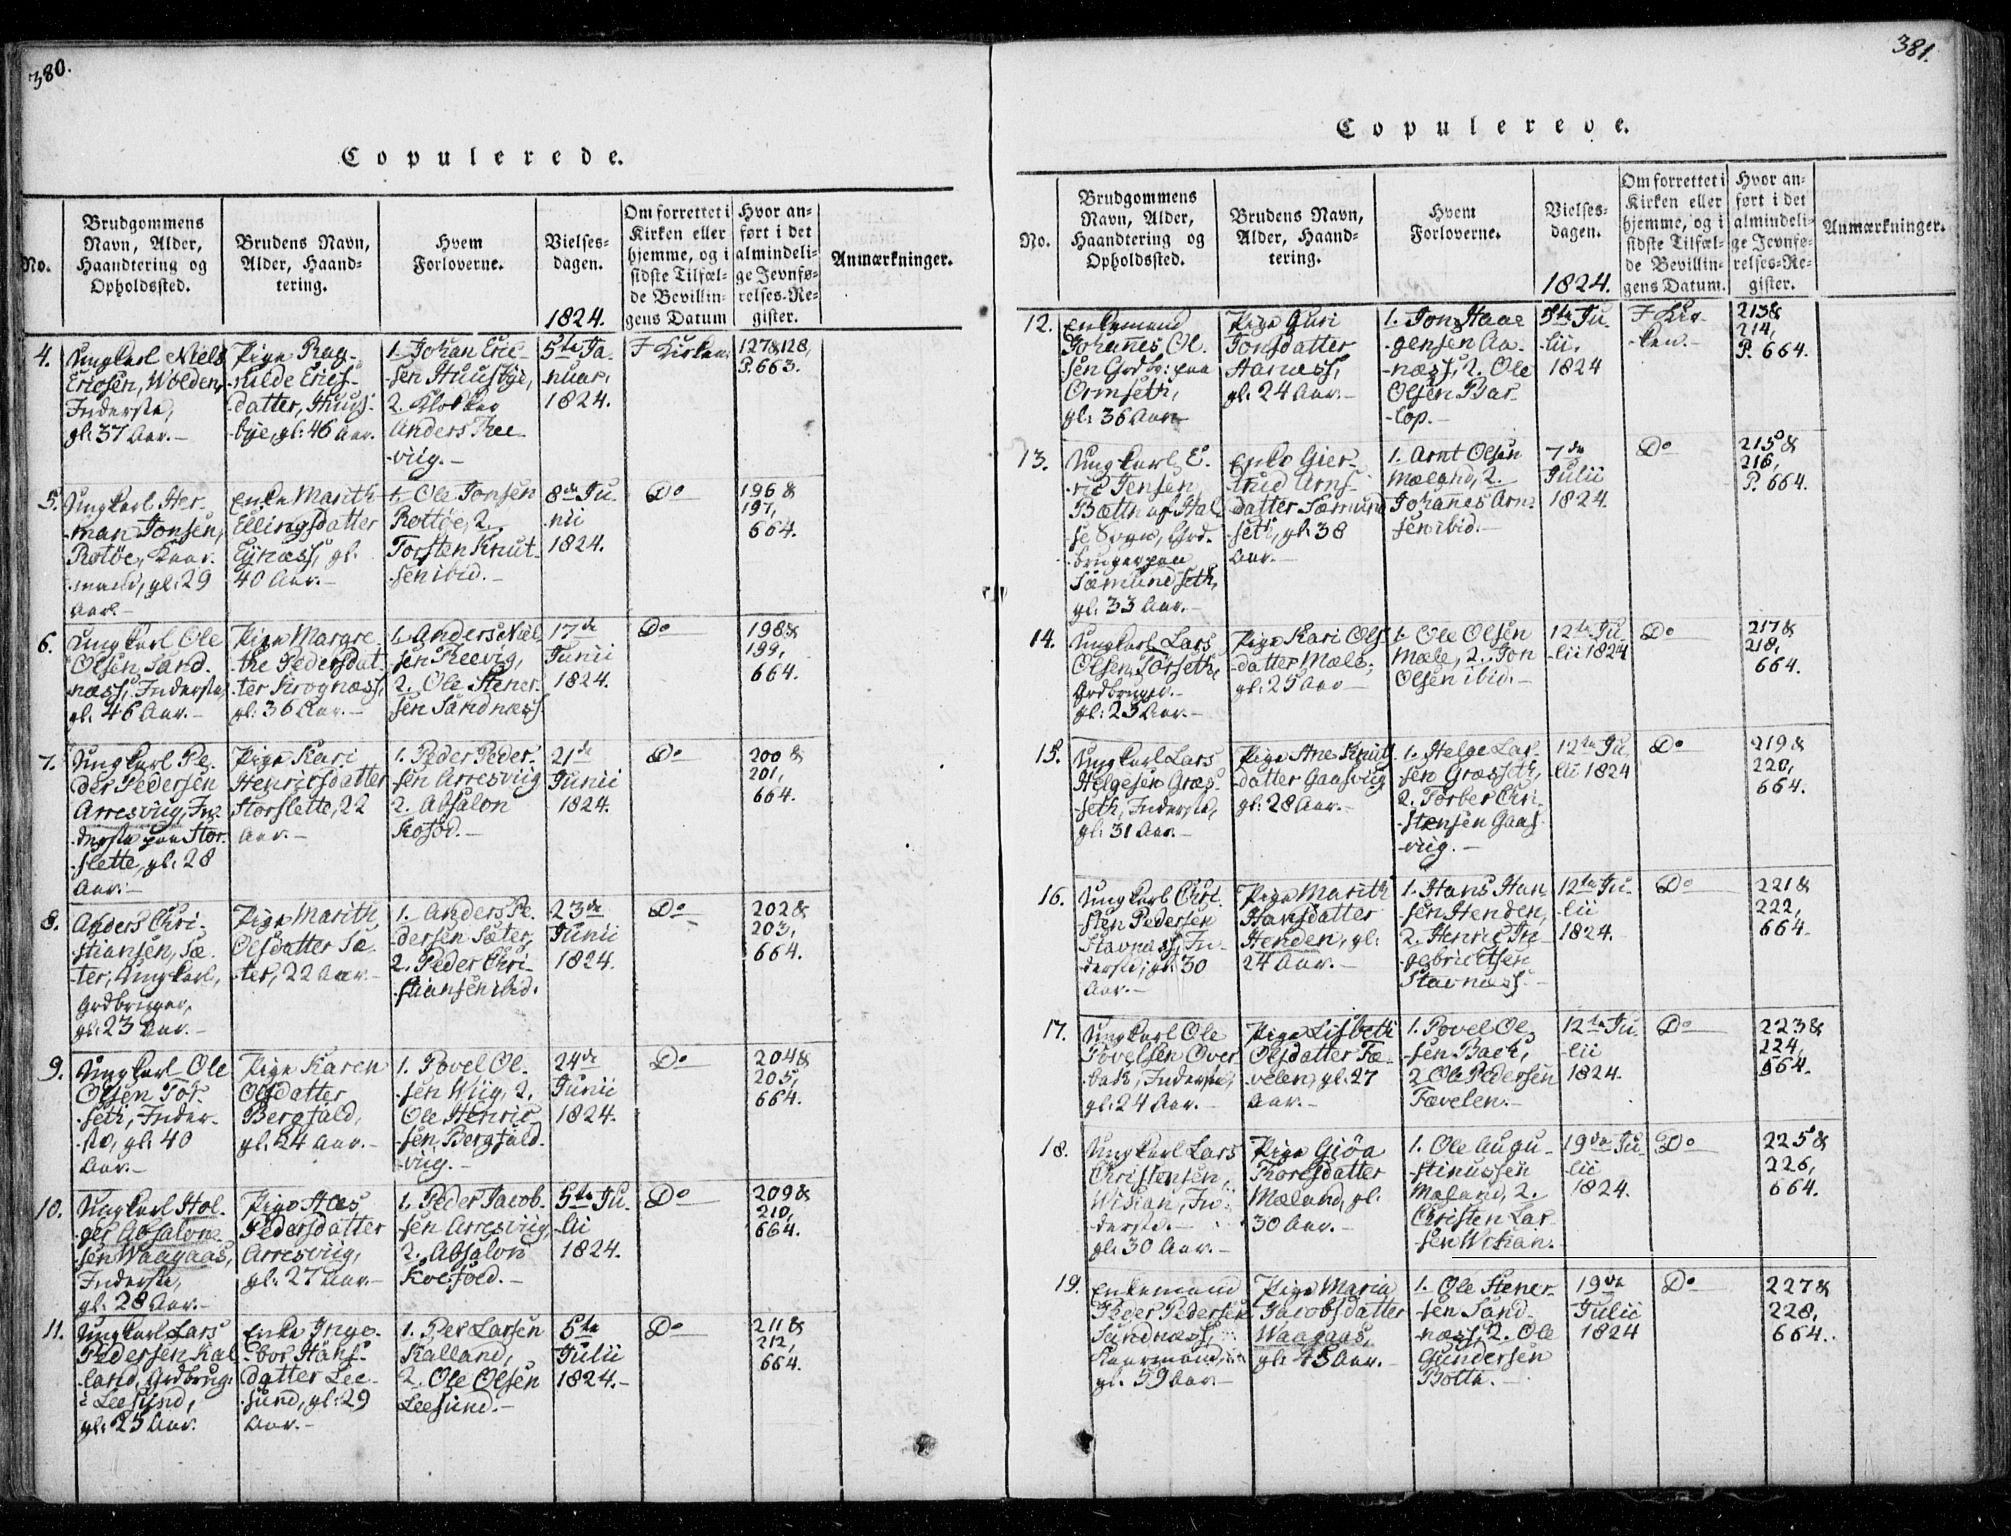 380.
Copulerede.
No.
Brudgommens
Navn, Alder,
Haandtering og
Opholdssted.
Brudens Navn,
Alder, Haand-
tering.
Hvem
Forloverne.
Vielses-
dagen.
1824.
Om forrettet i
Kirken eller
hjemme, og i
sidste Tilfæl-
de Bevillin-
gens Datum
Hvor an-
ført i det
almindeli-
ge Jevnfø-
relses-Re-
gister.
Anmærkninger.
4.
Ungkarl Niels
Ericsen, Wolden,
Inderste,
gl: 37 Aar.-
Pige Rag-
nilde Erics-
datter, Huus-
bye, gl: 46 Aar.
1. Johan Eric-
sen Huusbye,
2. Klokker
Anders Ree-
viig.-
5te Ja-
nuar:
1824.
I Kirken.
127&128,
P. 663.
5.
Ungkarl Her-
man Jonsen,
Rotøe, Kaar-
mand, gl: 29
Aar.
Enke Marith
Ellingsdatter
Eÿnæss, gl:
40 Aar.-
1. Ole Jonsen
Rottøe, 2.
Torsten Knut-
sen ibid.-
8de Ju-
nii
1824.
Do
196 &
197,
664.
6.
Ungkarl Ole
Olsen, Sand-
næss, Inderste,
gl: 46 Aar.-
Pige Margre-
the Pedersdat-
ter Krognæss,
gl: 36 Aar.-
1. Anders Niel-
sen Reevig,
2. Ole Stener-
sen Sandnæss
17de
Junii
1824.
Do
198 &
199,
664.
7.
Ungkarl Pe-
der Pedersen
Arresviig, In-
derste paa Stor-
slette, gl: 28
Aar:-
Pige Kari
Henricsdatter
Storslette, 22
Aar.-
1. Peder Peder-
sen Arresviig
2. Absalon
Kosfod.-
21de
Junii
1824.
Do
200 &
201,
664.
8.
Anders Chri-
stiansen, Sæ-
ter, Ungkarl,
Grdbruger,
gl: 23 Aar.-
Pige Marith
Olsdatter Sæ-
ter, 22 Aar.-
1. Anders Pe-
dersen Sæter,
2. Peder Chri-
stiansen ibid.
23de
Junii
1824.
Do
202 &
203,
664.
9.
Ungkarl Ole
Olsen Tor-
seth, Inder-
ste, gl: 40
Aar.-
Pige Karen
Olsdatter
Bergfald,
gl: 24 Aar.-
1. Povel Ol-
sen Wiig, 2.
Ole Henric-
sen, Bergfald-
viig.-
24de
Junii
1824.
Do
204 &
205,
664.
10.
Ungkarl Hol-
ger Absalon-
sen Waagaas,
Inderste,
gl: 28 Aar.-
Pige
Pedersdatter
Arresviig,
gl: 27 Aar.-
1. Peder Jacob-
sen Arresviig,
2. Absalon
Koesfold.-
5te Ju-
lii
1824.
Do
209 &
210,
664.
11.
Ungkarl Lars
Pedersen Kal-
land, Grdbrug:
i Leesund,
gl: 25 Aar.
Enke Inge-
bor Hans-
datter Lee-
sund, gl: 29
Aar.-
1. Per Larsen
Kalland,
2. Ole Olsen
Leesund.-
5te
Julii
1824.-
Do
211 &
212,
664.
381.
Copulerede.
No.
Brudgommens
Navn, Alder,
Haandtering og
Opholdssted.
Brudens Navn,
Alder, Haand-
tering.
Hvem
Forloverne.
Vielses-
dagen.
1824.
Om forrettet i
Kirken eller
hjemme, og i
sidste Tilfæl-
de Bevillin-
gens Datum.
Hvor an-
ført i det
almindeli-
ge Jevnfø-
relses-Re-
gister.
Anmærkninger.
12.
Enkemand
Johannes Ol-
sen Grdbr: paa
Ormseth,
gl: 36 Aar
Pige Guri
Jonsdatter
Aanæss,
gl: 24 Aar.-
1. Jon Haa-
gensen Aa-
næss, 2. Ole
Olsen Bar-
lop.-
5te Ju-
lii.
1824
I Kir-
ken.-
213 &
214,
P. 664.
13.
Ungkarl E-
ric Jensen
Bætten af Hal-
se Sogn, Grd-
bruger paa
Sæmundseth,
gl: 33 Aar.-
Enke Gier-
trud Arns-
datter Sæmund-
seth, gl: 38
Aar.-
1. Arnt Olsen
Mæland, 2.
Johannes Arn-
sen ibid.-
7de
Julii
1824.
Do
215 &
216,
P. 664.
14.
Ungkarl Lars
Olsen Torseth,
Grdbruger.-
gl: 23 Aar.-
Pige Kari Ols-
datter Mæle,
gl: 25 Aar-
1. Ole Olsen
Mæle, 2. Jon
Olsen ibid.-
12te Ju-
lii 1824
Do
217 &
218,
664.
15.
Ungkarl Lars
Helgesen Græs-
seth, Inderste,
gl: 31 Aar.-
Pige Ane Knuts-
datter Gaasviig
gl: 28 Aar.-
1. Helge Lar-
sen Græsseth,
2. Torber Chri-
stensen Gaas-
viig.-
12te Ju-
lii 1824
Do
219 &
220,
664.
16.
Ungkarl Chri-
sten Pedersen
Stavnæss, In-
derste, gl: 30
Aar.-
Pige Marith
Hansdatter
Henden, gl:
24 Aar.-
1. Hans Han-
sen Henden,
2. Henric In-
gebrigtsen
Stavnæss.-
12te Ju-
lii
1824.
Do
221 &
222,
664.
17.
Ungkarl Ole
Povelsen Over-
bach, Inderste,
gl: 24 Aar.-
Pige Lisbeth
Olsdatter Fæ-
velen, gl: 27
Aar.-
1. Povel Ol-
sen Bach,
2. Ole Pedersen
Fævelen.-
12te Ju-
lii
1824.
Do
223 &
224,
664.
18.
Ungkarl Lars
Christensen,
Wikan, In-
derste.-
gl: 30 Aar.-
Pige Giøa
Thoresdatter
Mæland, gl:
30 Aar.-
1. Ole Augu-
stinussen
Mæland, 2.
Christen Lar-
sen Wikan.-
19de Ju-
lii
1824.
Do
225 &
226,
664.
19.
Enkemand
Peder Pedersen
Sandnæss,
Kaarmand,
gl: 59 Aar.-
Pige Maria
Jacobsdatter
Waagaas,
gl: 45 Aar.-
1. Ole Stener-
sen Sand-
næss, 2. Ole
Gundersen
Botten.-
19de
Julii
1824
Do
227 &
228,
664.